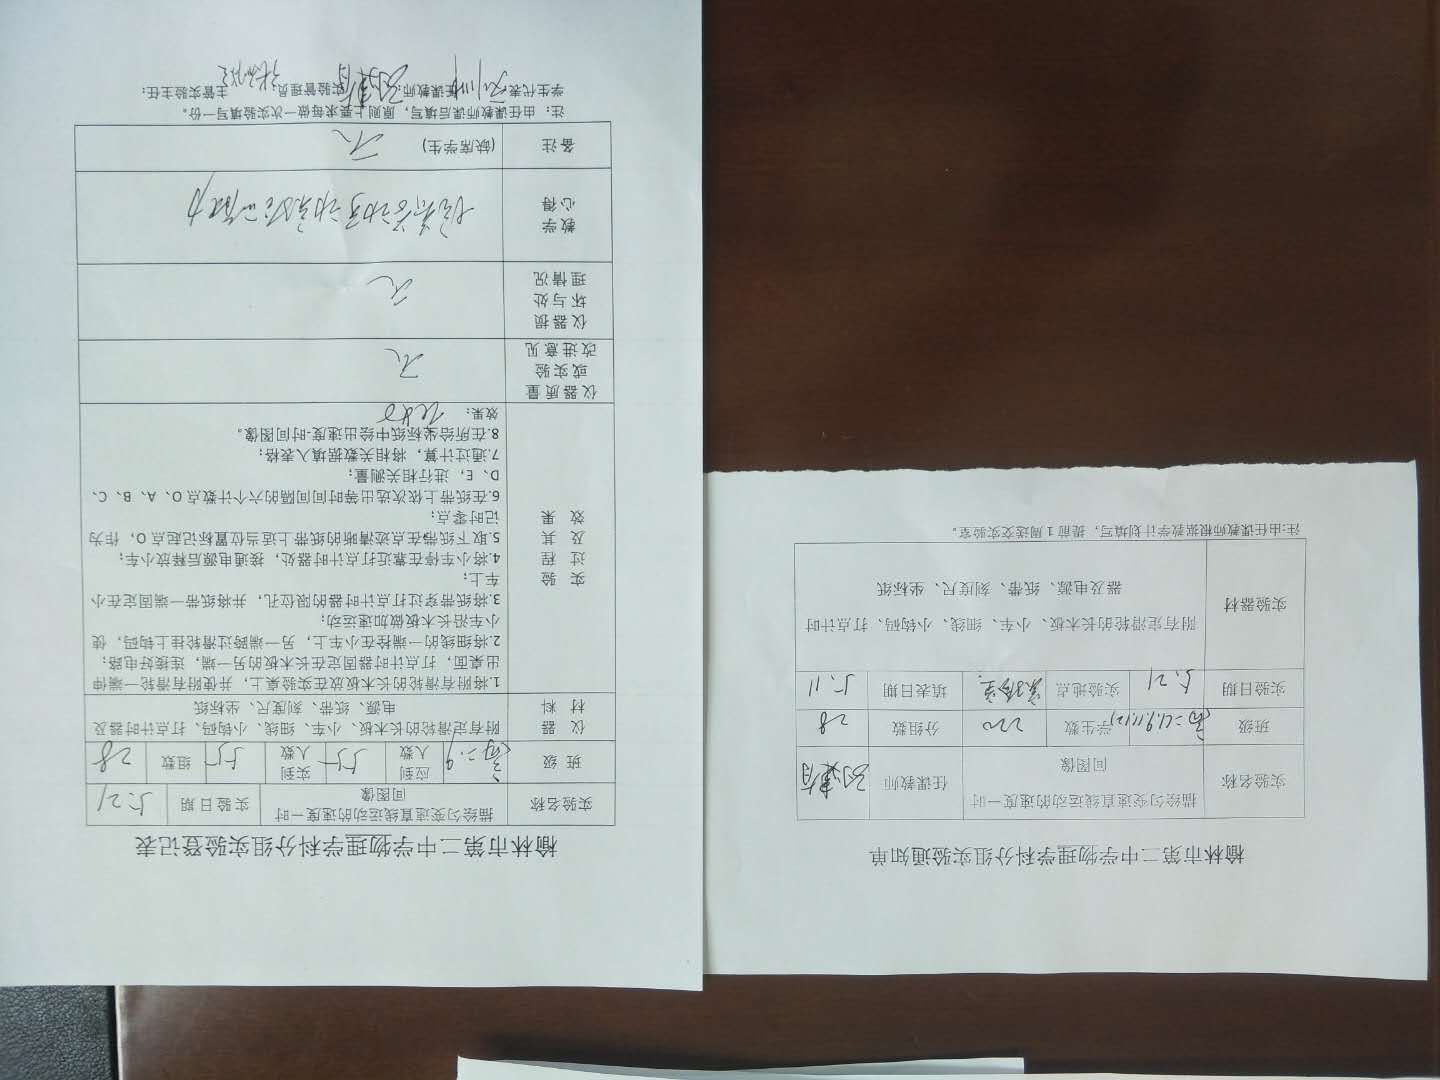 榆林市第二中学物理学科分组实验登记表
实验名称 描绘匀变速直线运动的速度一时间图像 实验日期 5.21
班 级 高二.9 应到人数 55 实到人数 55 组数 28
仪 器 材 料 附有定滑轮的长木板、小车、细线、小钩码、打点计时器及
电源、纸带、刻度尺、坐标纸
实 验 过 程 及 其 效 果
1.将附有滑轮的长木板放在实验桌上，并使附有滑轮一端伸
出桌面，打点计时器固定在长木板的另一端，连接好电路；
2.将细线的一端栓在小车上，另一端跨过滑轮挂上钩码，使
小车沿长木板做加速运动；
3.将纸带穿过打点计时器的限位孔，并将纸带一端固定在小
车上；
4.将小车停在靠近打点计时器处，接通电源后释放小车；
5.取下纸带在点迹清晰的纸带上适当位置标记起点O，作为
记时零点；
6.在纸带上依次选出等时间间隔的六个计数点O、A、B、C、
D、E，进行相关测量；
7.通过计算，将相关数据填入表格；
8.在所给坐标纸中绘出速度-时间图像。
效果：
仪器质量或实验改进意见 无
仪器损坏与处理情况 无
教学心得
备注 (缺席学生) 无
注：由任课教师课后填写，原则上要求每做一次实验填写一份。
学生代表： 任课教师： 实验管理员： 主管实验主任：
榆林市第二中学物理学科分组实验通知单
实验名称 描绘匀变速直线运动的速度一时间图像 任课教师
班级 学生数 220 分组数 28
实验日期 5.21 实验地点 实验室 填表日期 5.11
实验器材 附有定滑轮的长木板、小车、细线、小钩码、打点计时
器及电源、纸带、刻度尺、坐标纸
注:由任课教师根据教学计划填写，提前 1 周送交实验室。